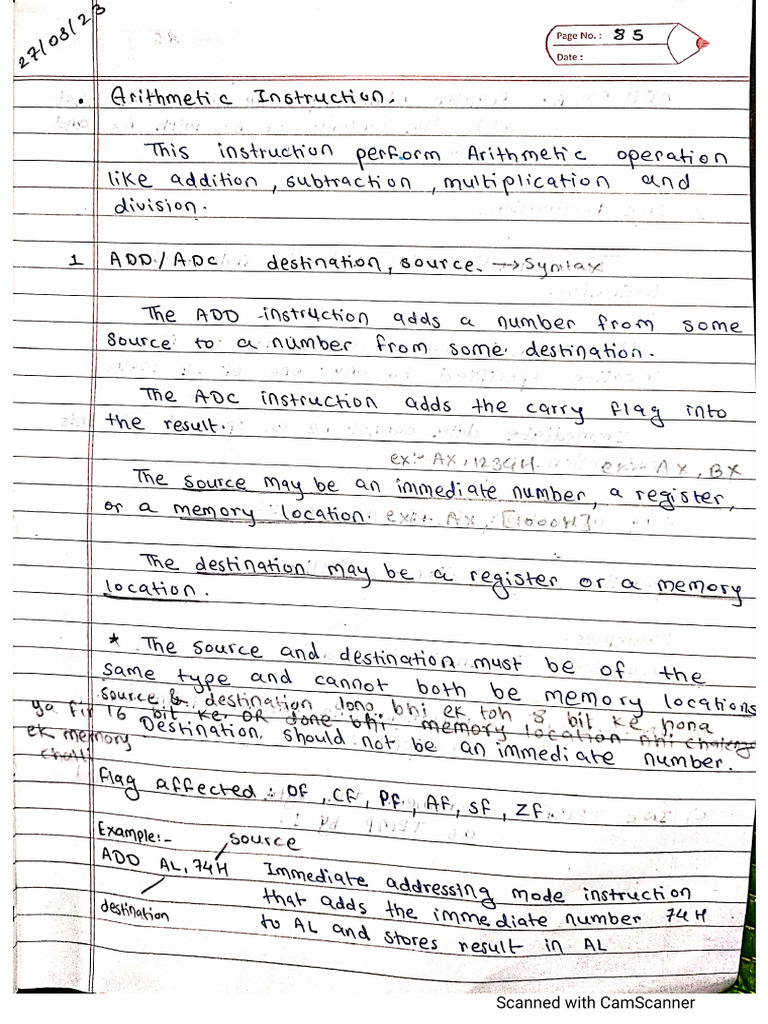 27/03/23
Page No. : 85
Date :
• Arithmetic Instruction.
This instruction perform Arithmetic operation
like addition, subtraction, multiplication and
division.
1 ADD/ADC destination, source. → Syntax
The ADD instruction adds a number from some
source to a number from some destination.
The ADC instruction adds the carry flag into
the result.
ex:- AX, 1234H. ex:- AX, BX
The source may be an immediate number, a register,
or a memory location. ex:- AX, [1000H]
The destination may be a register or a memory
location.
* The source and destination must be of the
same type and cannot both be memory locations
source & destination dono bhi ek toh 8 bit ke hona
ya fir 16 bit ke. OR dono bhi memory location nhi chalenge
ek memory
Destination should not be an immediate number.
Flag affected : OF, CF, PF, AF, SF, ZF.
Example:- source
ADD AL, 74H Immediate addressing mode instruction
that adds the immediate number 74H
destination
to AL and stores result in AL
Scanned with CamScanner